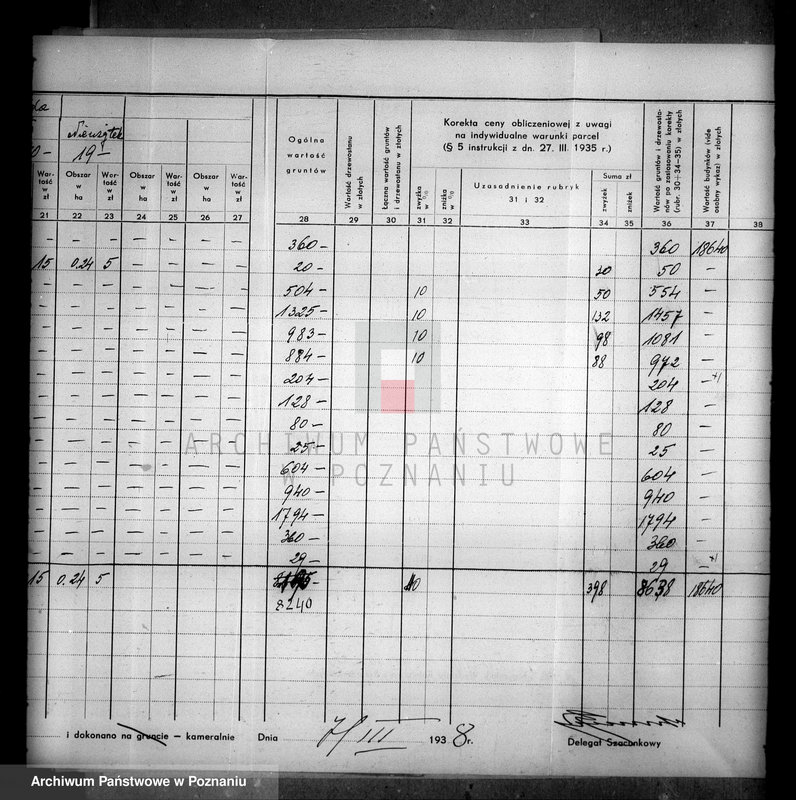 Nieużytek
19-
Wartość w zł
Obszar w ha
Wartość w zł
Obszar w ha
Wartość w zł
Obszar w ha
Wartość w zł
Ogólna wartość gruntów
Wartość drzewostanu w złotych
Łączna wartość gruntów i drzewostanu w złotych
Korekta ceny obliczeniowej z uwagi
na indywidualne warunki parcel
(§ 5 instrukcji z dn. 27. III. 1935 r.)
zwyżka w %
zniżka w %
Uzasadnienie rubryk
31 i 32
Suma zł
zwyżek
zniżek
Wartość gruntów i drzewostanów po zastosowaniu korekty (rubr. 30+34-35) w złotych
Wartość budynków (vide osobny wykaz) w złotych
21 22 23 24 25 26 27 28 29 30 31 32 33 34 35 36 37 38
- - - - - - - 360- 360 18640
15 0.24 5 - - - - 20- 30 50 -
- - - - - - - 504- 10 50 554 -
- - - - - - - 1325- 10 132 1457 -
- - - - - - - 983- 10 98 1081 -
- - - - - - - 884- 10 88 972 -
- - - - - - - 204- 204 -*)
- - - - - - - 128- 128 -
- - - - - - - 80- 80 -
- - - - - - - 25- 25 -
- - - - - - - 604- 604 -
- - - - - - - 940- 940 -
- - - - - - - 1794- 1794 -
- - - - - - - 360- 360 -
- - - - - - - 29- 29 -*)
15 0.24 5 10 398 8638 18640
8240
i dokonano na gruncie — kameralnie Dnia 7/III 1938 r.
Delegat Szacunkowy
ARCHIWUM PAŃSTWOWE
W POZNANIU
Archiwum Państwowe w Poznaniu